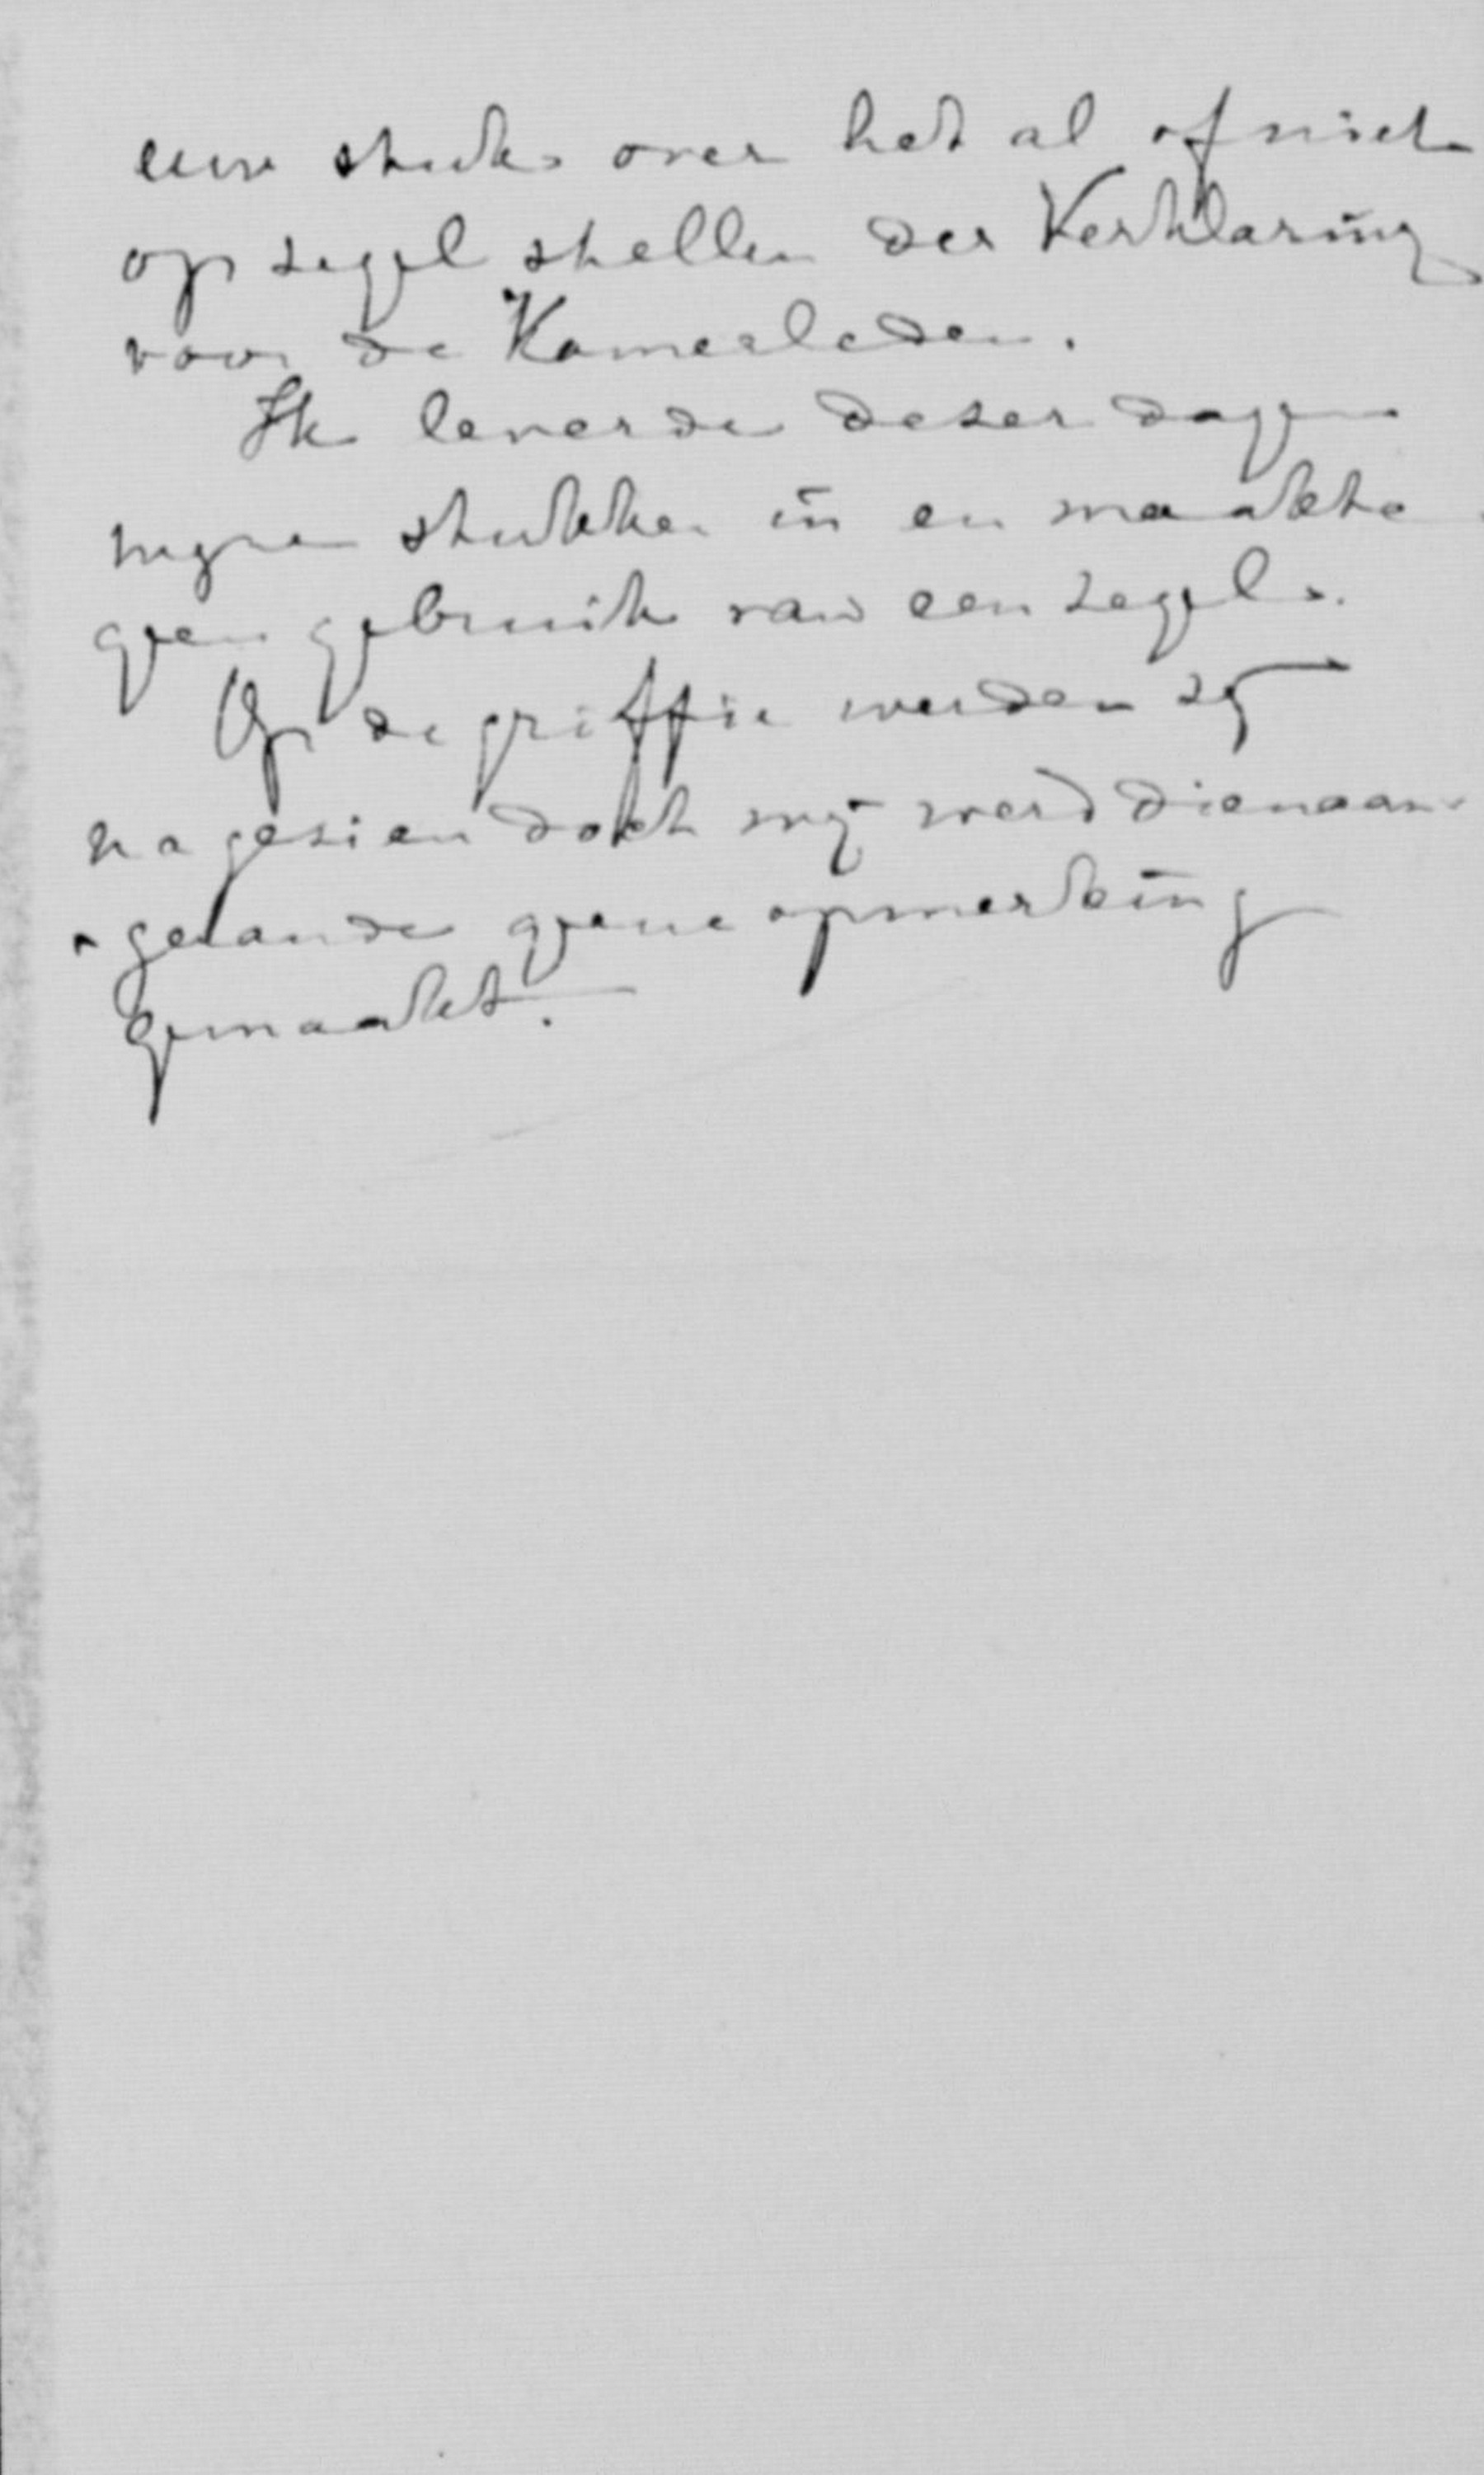 uw stuk over het al of niet
op zegel stellen der Verklaring
voor de Kamerleden.
Ik leverde dezer dagen
mijne stukken in en maakte
geen gebruik van een zegel.
Op de griffie werden zij
nagezien doch mij werd dienaan-
gaande geene opmerking
gemaakt.